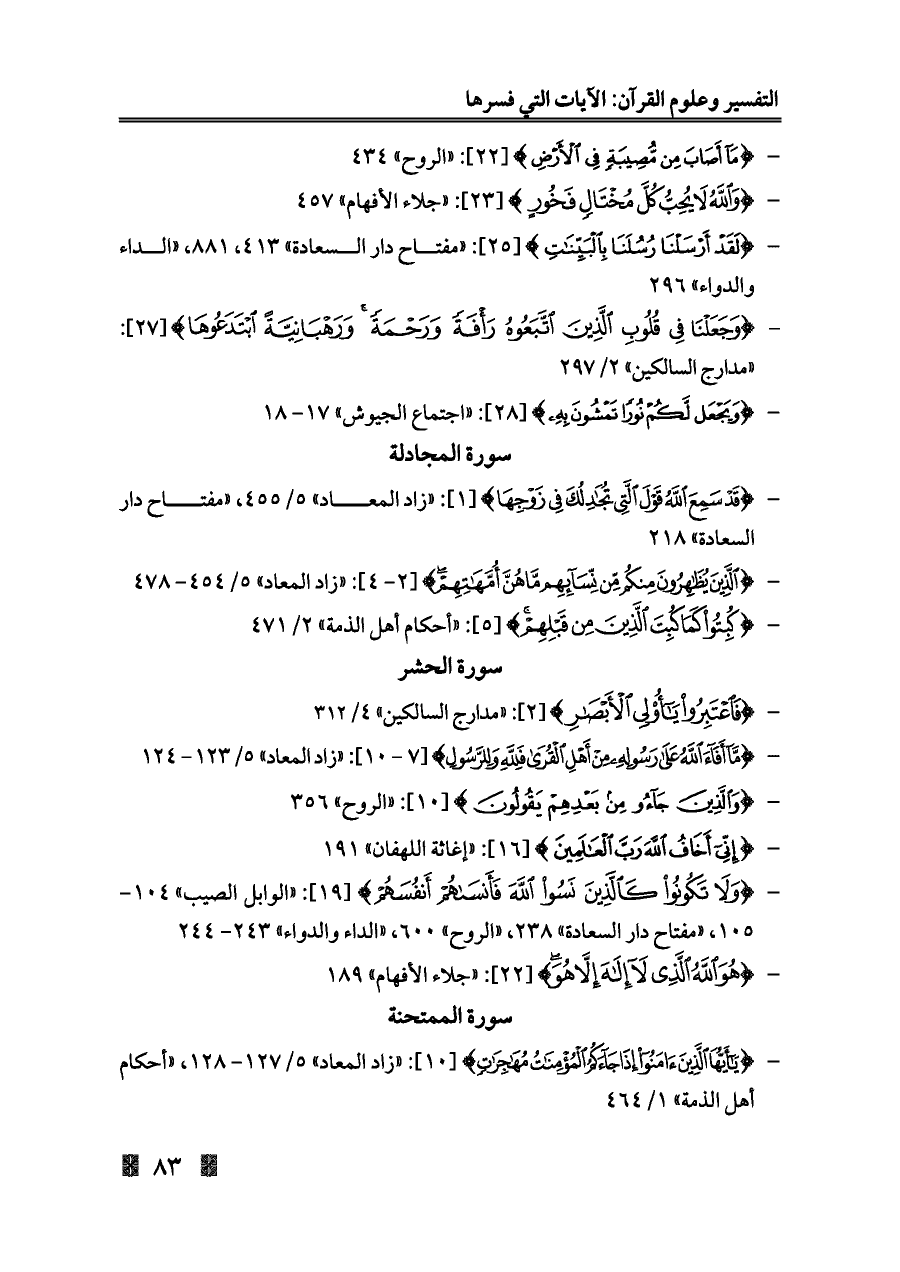 التفسير وعلوم القرآن: الآيات التي فسرها
- ﴿مَآ أَصَابَ مِن مُّصِيبَةٖ فِي ٱلۡأَرۡضِ﴾ [٢٢]: «الروح» ٤٣٤
- ﴿وَٱللَّهُ لَا يُحِبُّ كُلَّ مُخۡتَالٖ فَخُورٍ﴾ [٢٣]: «جلاء الأفهام» ٤٥٧
- ﴿لَقَدۡ أَرۡسَلۡنَا رُسُلَنَا بِٱلۡبَيِّنَٰتِ﴾ [٢٥]: «مفتاح دار السعادة» ٤١٣، ٨٨١، «الداء
والدواء» ٢٩٦
- ﴿وَجَعَلۡنَا فِي قُلُوبِ ٱلَّذِينَ ٱتَّبَعُوهُ رَأۡفَةٗ وَرَحۡمَةٗۚ وَرَهۡبَانِيَّةً ٱبۡتَدَعُوهَا﴾ [٢٧]:
«مدارج السالكين» ٢/ ٢٩٧
- ﴿وَيَجۡعَل لَّكُمۡ نُورٗا تَمۡشُونَ بِهِۦ﴾ [٢٨]: «اجتماع الجيوش» ١٧- ١٨
سورة المجادلة
- ﴿قَدۡ سَمِعَ ٱللَّهُ قَوۡلَ ٱلَّتِي تُجَٰدِلُكَ فِي زَوۡجِهَا﴾ [١]: «زاد المعاد» ٥/ ٤٥٥، «مفتاح دار
السعادة» ٢١٨
- ﴿ٱلَّذِينَ يُظَٰهِرُونَ مِنكُم مِّن نِّسَآئِهِم مَّا هُنَّ أُمَّهَٰتِهِمۡۖ﴾ [٢- ٤]: «زاد المعاد» ٥/ ٤٥٤- ٤٧٨
- ﴿كُبِتُواْ كَمَا كُبِتَ ٱلَّذِينَ مِن قَبۡلِهِمۡۚ﴾ [٥]: «أحكام أهل الذمة» ٢/ ٤٧١
سورة الحشر
- ﴿فَٱعۡتَبِرُواْ يَٰٓأُوْلِي ٱلۡأَبۡصَٰرِ﴾ [٢]: «مدارج السالكين» ٤/ ٣١٢
- ﴿مَّآ أَفَآءَ ٱللَّهُ عَلَىٰ رَسُولِهِۦ مِنۡ أَهۡلِ ٱلۡقُرَىٰ فَلِلَّهِ وَلِلرَّسُولِ﴾ [٧ - ١٠]: «زاد المعاد» ٥/ ١٢٣- ١٢٤
- ﴿وَٱلَّذِينَ جَآءُو مِنۢ بَعۡدِهِمۡ يَقُولُونَ﴾ [١٠]: «الروح» ٣٥٦
- ﴿إِنِّيٓ أَخَافُ ٱللَّهَ رَبَّ ٱلۡعَٰلَمِينَ﴾ [١٦]: «إغاثة اللهفان» ١٩١
- ﴿وَلَا تَكُونُواْ كَٱلَّذِينَ نَسُواْ ٱللَّهَ فَأَنسَىٰهُمۡ أَنفُسَهُمۡ﴾ [١٩]: «الوابل الصيب» ١٠٤-
١٠٥، «مفتاح دار السعادة» ٢٣٨، «الروح» ٦٠٠، «الداء والدواء» ٢٤٣- ٢٤٤
- ﴿هُوَ ٱللَّهُ ٱلَّذِي لَآ إِلَٰهَ إِلَّا هُوَۖ﴾ [٢٢]: «جلاء الأفهام» ١٨٩
سورة الممتحنة
- ﴿يَٰٓأَيُّهَا ٱلَّذِينَ ءَامَنُوٓاْ إِذَا جَآءَكُمُ ٱلۡمُؤۡمِنَٰتُ مُهَٰجِرَٰتٖ﴾ [١٠]: «زاد المعاد» ٥/ ١٢٧- ١٢٨، «أحكام
أهل الذمة» ١/ ٤٦٤
٨٣